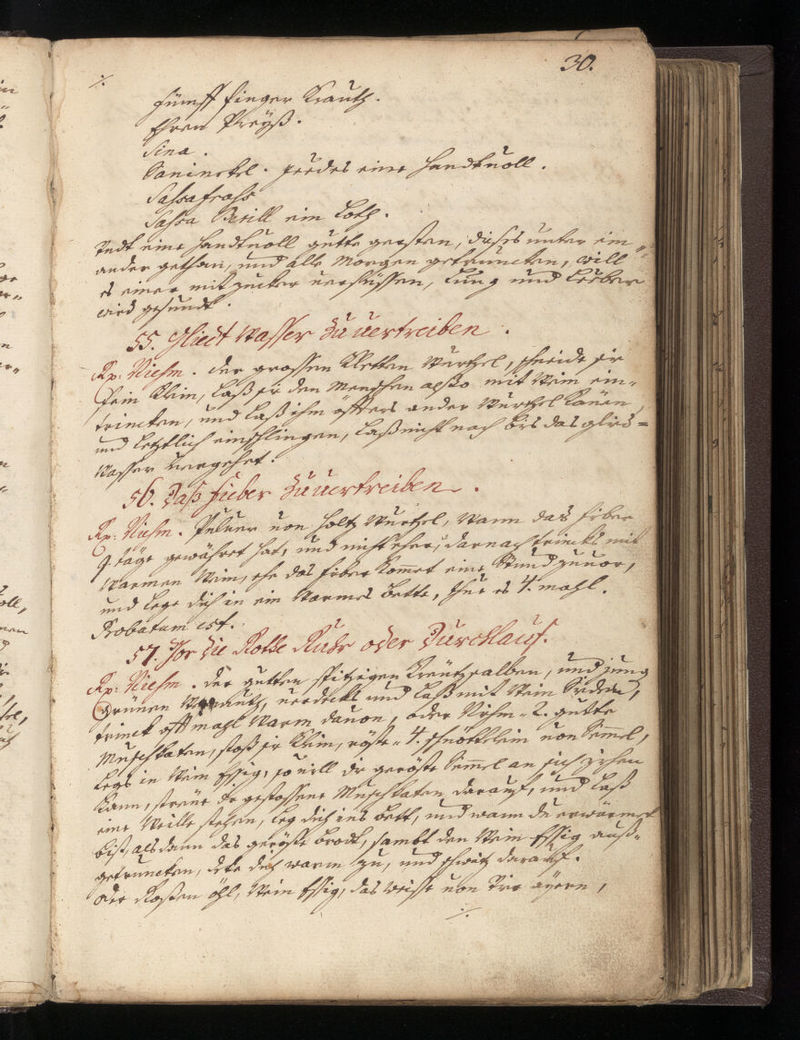 30.
fünff finger Krauth.
Ehren Preyß.
Sina.
Saninckel. jeedes eine handtuoll.
Sassafrahs
Salsa Berill ein Loth.
Redt eine handtuoll gutte gersten, dieses unter ein-
ander gethan, und alle Morgen getruncken, will
es einer mit zucker versüessen, Lung und Leeber
wird gesundt.
55. Gliedt Wasser Zuuertreiben.
Rp: Niehm. der grossen Kletten Wurtzel, schneide sie
fein klein, Laß sie den Menschen also mit Wein ein-
trincken, und Laß ihm öffters ander Wurtzel Käüen
und letztlich einschlingen, Laß nicht nach bis das glied-
Wasser vergehet.
56. Daß fieber Zuuertreiben.
Rp: Niehm. Puluer uon holtz Wurtzel, Wann das fieber
9 täge gewähret hat, und nicht eher, darnach trincks mit
Warmen Wein, ehe das fieber komet eine Stund zuuor,
und lege dich in ein Warmes bette, thue es 4. mahl.
Probatum est.
57. Vor die Rothe Ruhr oder Durchlauf.
Rp: Niehm. der gutten spitzigen Creütz salben, und jung
grünen Krauth, verdeckt und Laß mit Wein Sieden,
trinck offtmahl Warm dauon, oder Nihm 2. gutte
Muschkaten, stoß sie klein, röste 4. schnittelein uon Semel,
legs in Wein Essig, so uill die geröste Semel an sich ziehen
kann, streüe die gestossene Muschkaten darauf, und Laß
eine Weille stehen, leg dich ins bett, und wann du erwärmet
bist, als dann das geröste brodt, sambt den Wein Essig auß-
getruncken, deke dich warm zu, und schwitz darauf.
oder Roßen öhl, Wein Essig, das Weisse uon drei ayern,